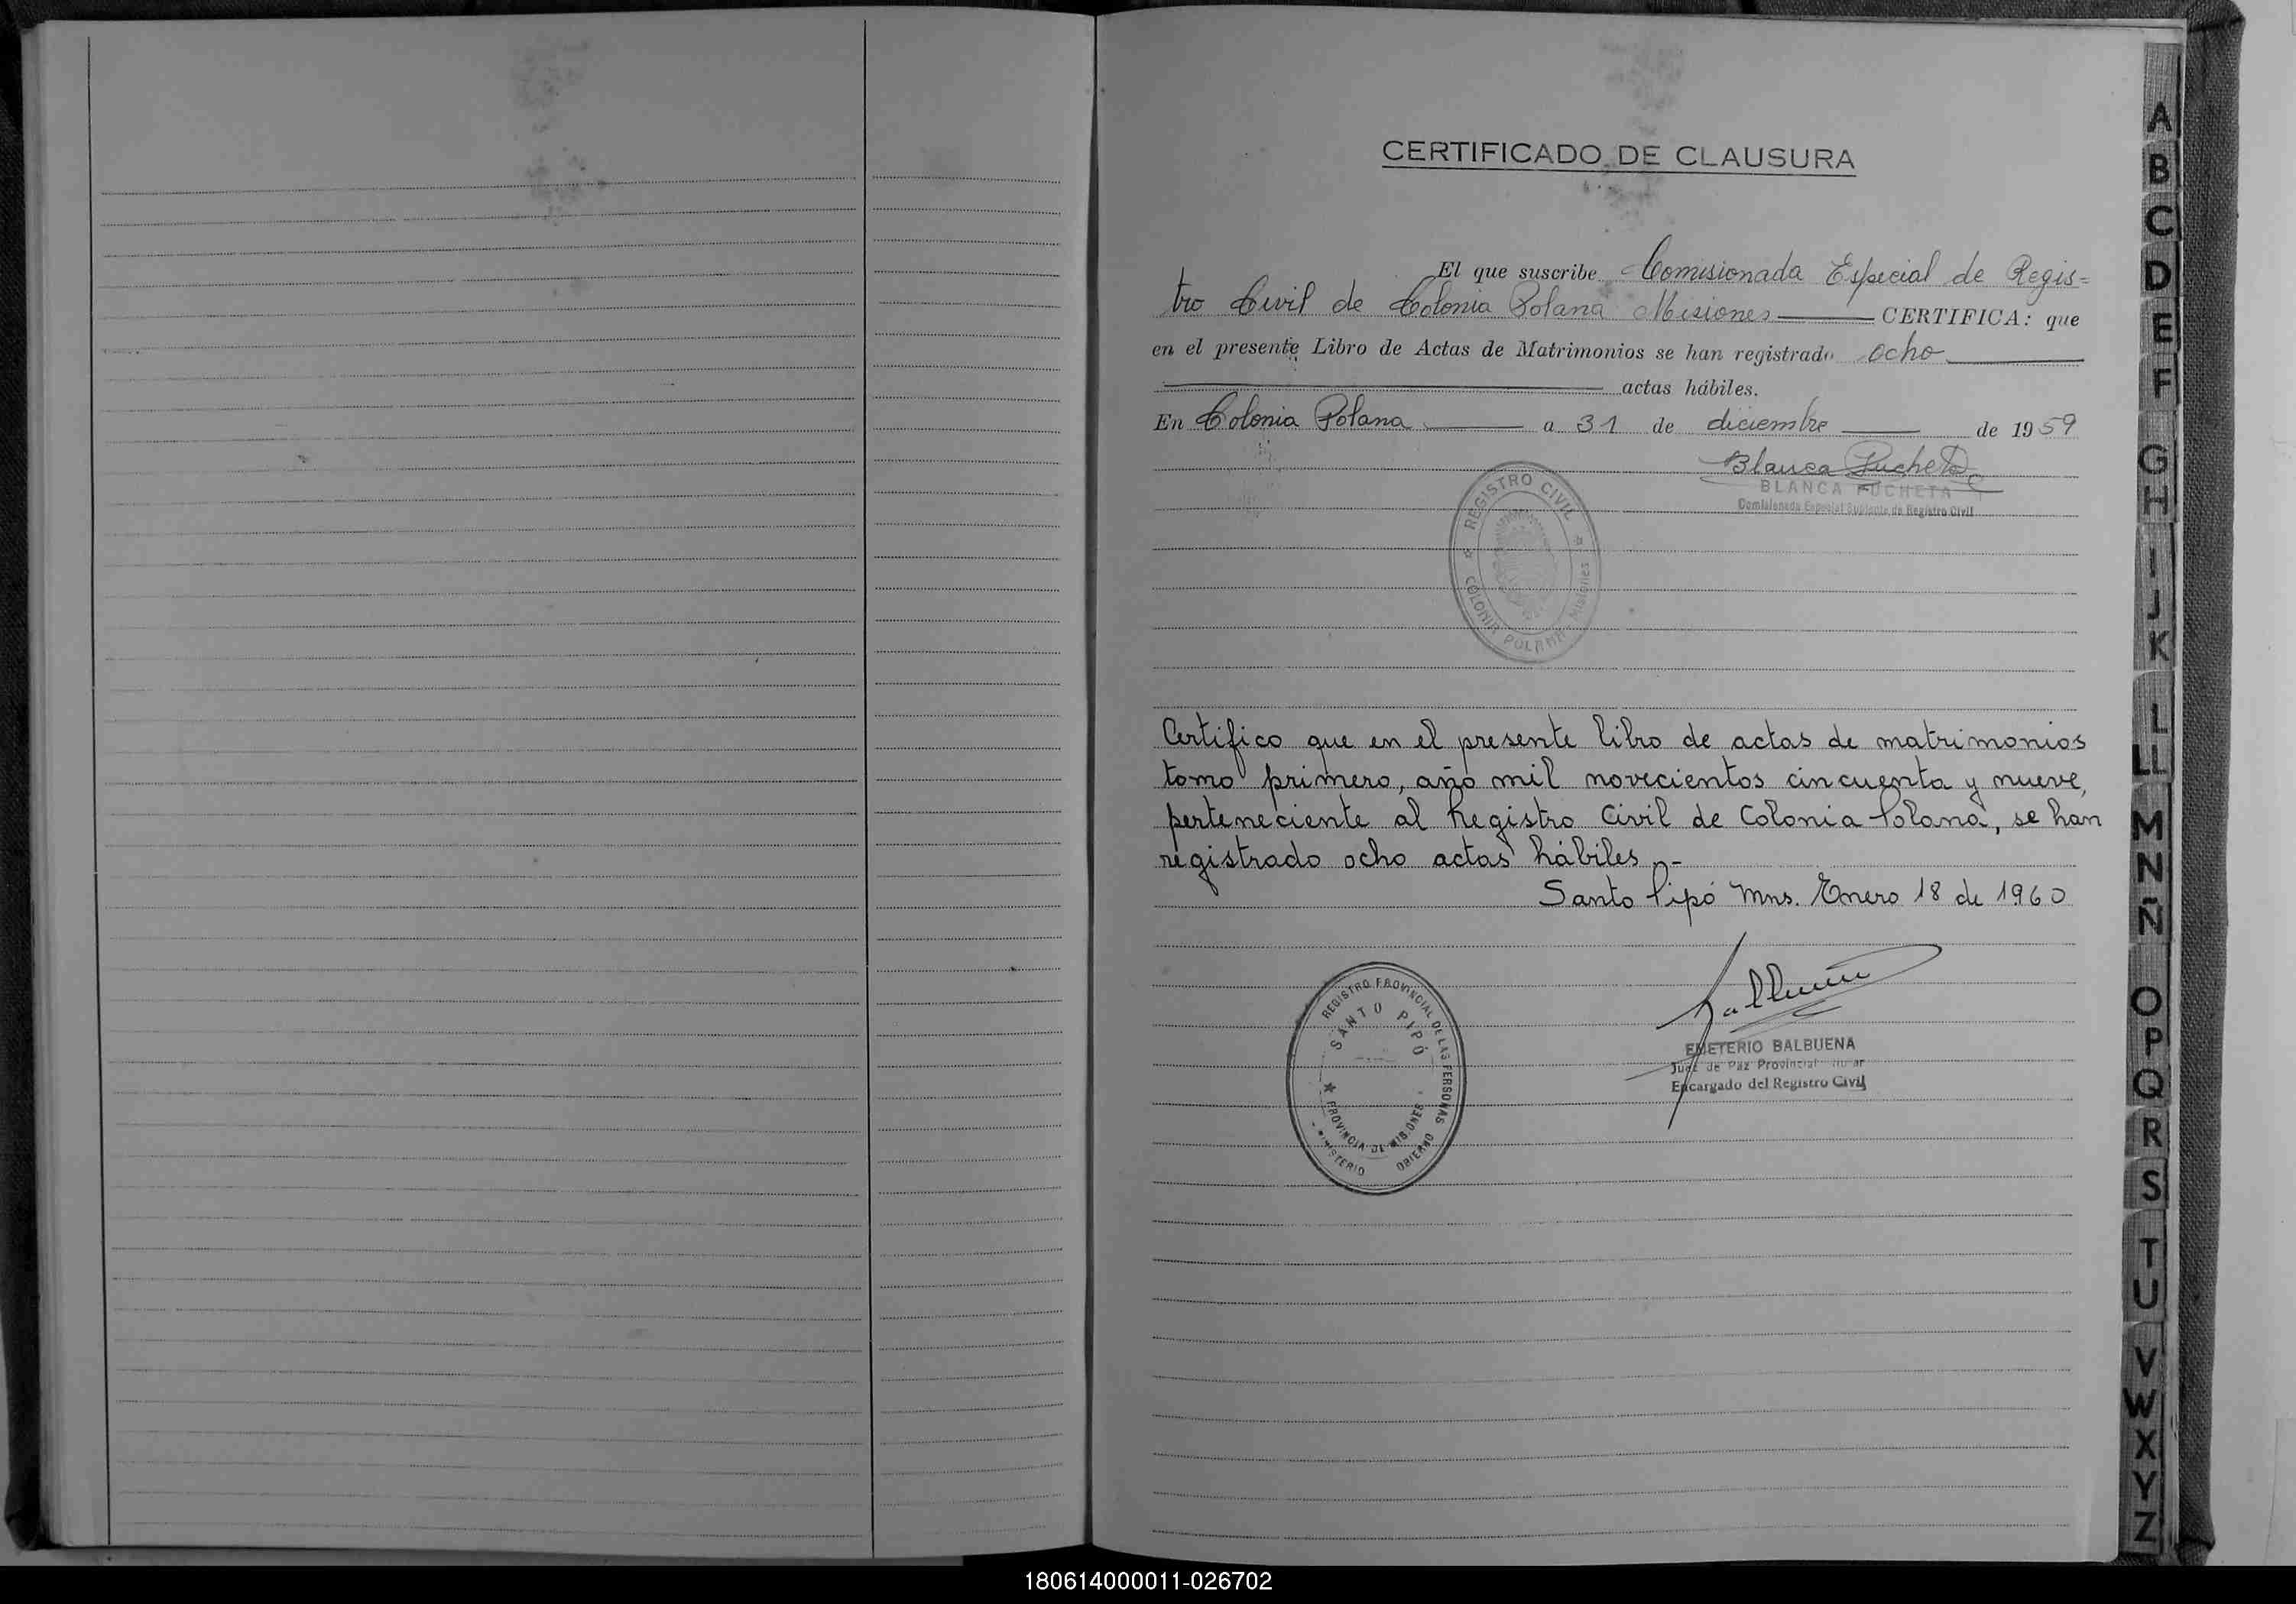 CERTIFICADO DE CLAUSURA
El que suscribe Comisionada Especial de Regis=
tro Civil de Colonia Polana Misiones CERTIFICA: que
en el presente Libro de Actas de Matrimonios se han registrado ocho
actas hábiles.
En Colonia Polana a 31 de diciembre de 1959
Blanca Pucheta
BLANCA PUCHETA
Comisionada Especial Suplente de Registro Civil
REGISTRO CIVIL
COLONIA POLANA Misiones
Certifico que en el presente libro de actas de matrimonios
tomo primero, año mil novecientos cincuenta y nueve,
perteneciente al Registro Civil de Colonia Polana, se han
registrado ocho actas hábiles.-
Santo Pipó Mns. Enero 18 de 1960
REGISTRO PROVINCIAL DE LAS PERSONAS
SANTO PIPÓ
PROVINCIA DE MISIONES
MINISTERIO OBIERNO
EMETERIO BALBUENA
Juez de Paz Provincial
Encargado del Registro Civil
A
B
C
D
E
F
G
H
I
J
K
L
LL
M
N
Ñ
O
P
Q
R
S
T
U
V
W
X
Y
Z
180614000011-026702